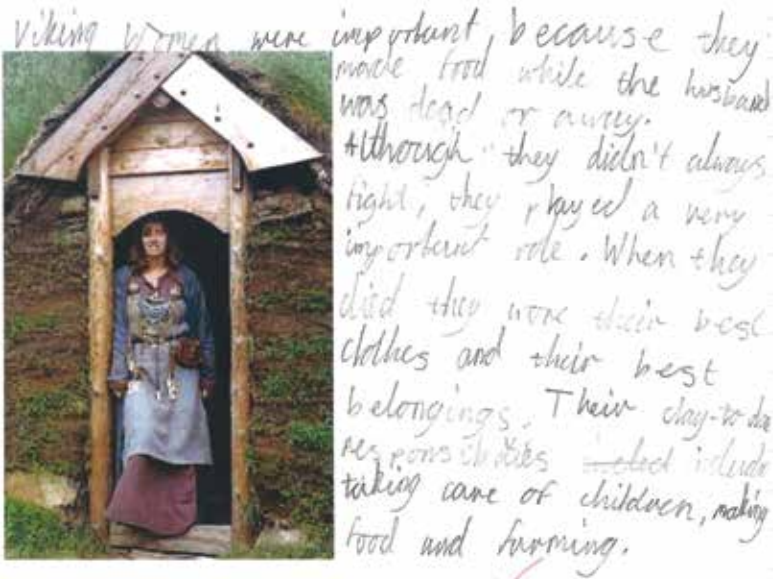 Viking Women were important, because they
made food while the husband
was dead or away.
Although they didn't always
fight, they played a very
important role. When they
died they wore their best
clothes and their best
belongings. Their day-to-da
responsibilities include
taking care of children, making
food and farming.